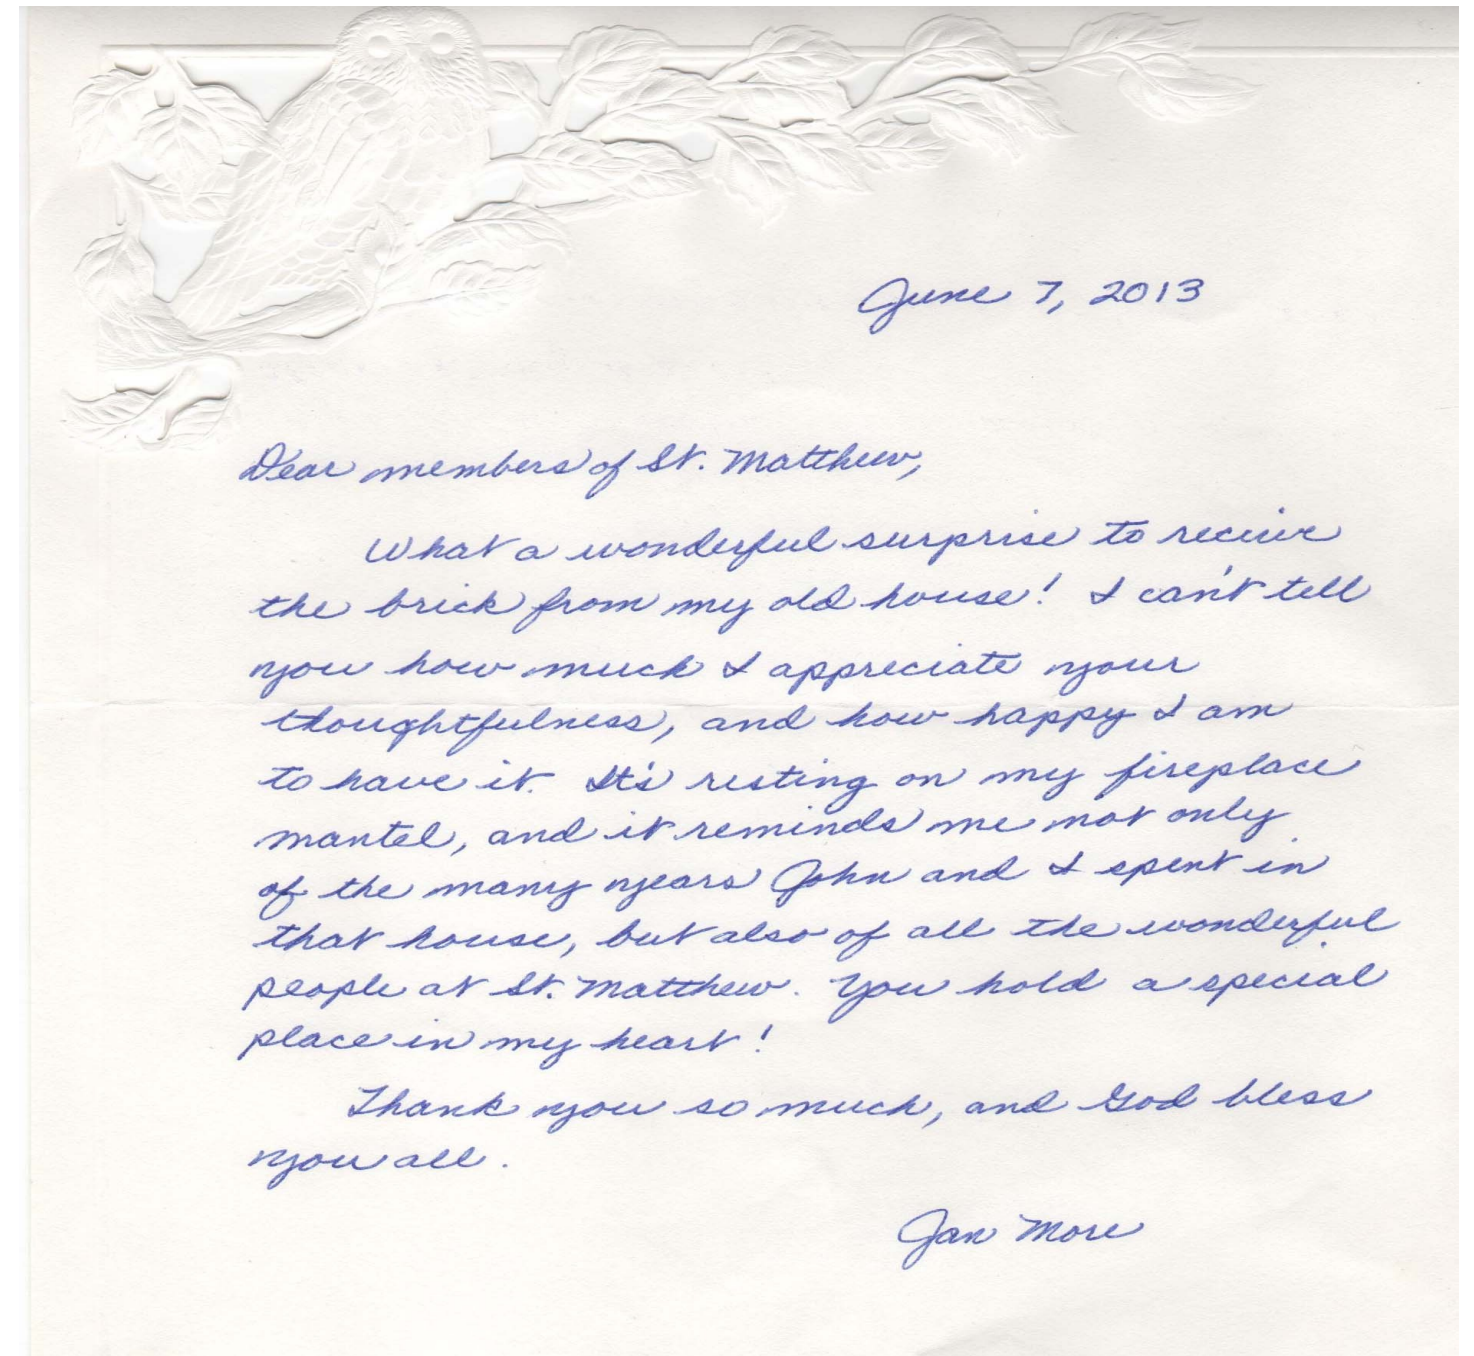 June 7, 2013
Dear members of St. Matthew,
What a wonderful surprise to receive
the brick from my old house! I can't tell
you how much I appreciate your
thoughtfulness, and how happy I am
to have it. It's resting on my fireplace
mantel, and it reminds me not only
of the many years John and I spent in
that house, but also of all the wonderful
people at St. Matthew. You hold a special
place in my heart!
Thank you so much, and God bless
you all.
Jan More